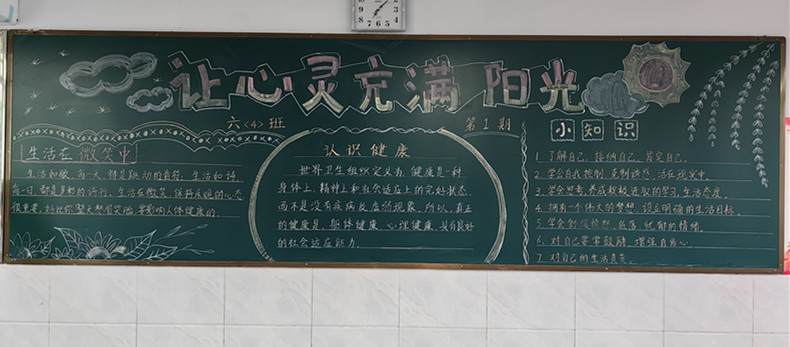 让心灵充满阳光
六〈4〉班
第1期
生活在微笑中
生活如歌,每一天都是跳动的音符,生活如诗,
每一日都是多彩的诗行,生活在微笑,保持乐观的心态
很重要,
人体健康的。
认识健康
世界卫生组织定义为,健康是一种
身体上、精神上和社会适应上的完好状态,
而不是没有疾病及虚弱现象。所以,真正
的健康是,躯体健康、心理健康、具有良好
的社会适应能力。
小知识
1. 了解自己,接纳自己,肯定自己。
2. 学会自我控制,克制诱惑,活在现实中。
3. 学会思考,养成积极进取的学习生活态度。
4. 拥有一个伟大的梦想,设立明确的生活目标。
5. 学会 愤怒、低落、忧郁的情绪。
6. 对自己要常鼓励,增强自信心。
7. 对自己的生活负责。